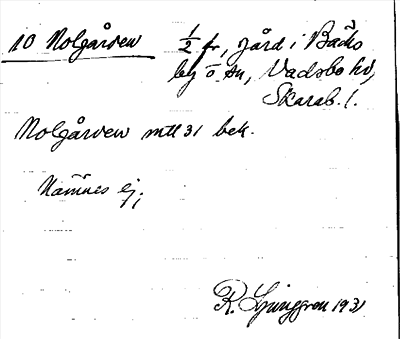 10 Nolgården
1/2 fr, gård i Bäcks
by ö. sn, Vadsbo hd,
Skarab. l.
Nolgården mtl 31 bek.
Nämnes ej;
R. Ljunggren 1931